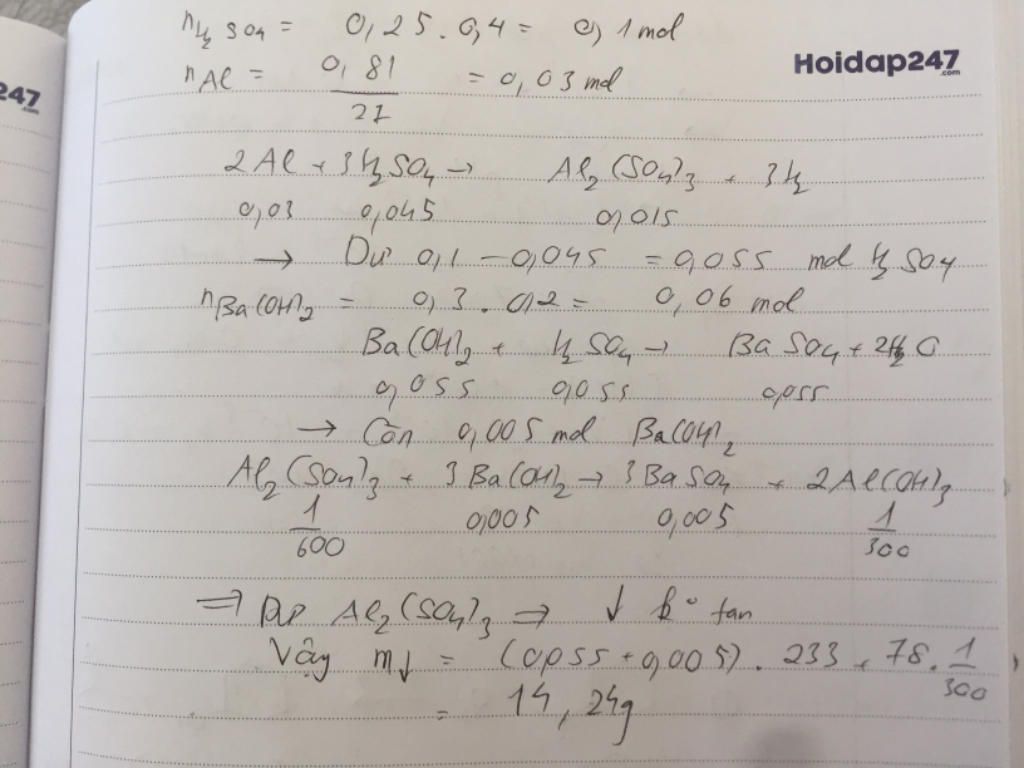 nH₂SO₄ = 0,25 . 0,4 = 0,1 mol
Hoidap247
.com
247
nAl = 0,81/27 = 0,03 mol
2Al + 3H₂SO₄ → Al₂(SO₄)₃ + 3H₂
0,03 0,045 0,015
→ Dư 0,1 - 0,045 = 0,055 mol H₂SO₄
nBa(OH)₂ = 0,3 . 0,2 = 0,06 mol
Ba(OH)₂ + H₂SO₄ → BaSO₄ + 2H₂O
0,055 0,055 0,055
→ Còn 0,005 mol Ba(OH)₂
Al₂(SO₄)₃ + 3Ba(OH)₂ → 3BaSO₄ + 2Al(OH)₃
1/600 0,005 0,005 1/300
⇒ Dư Al₂(SO₄)₃ ⇒ ↓ k° tan
Vậy m↓ = (0,055 + 0,005) . 233 + 78 . 1/300
= 14,24g